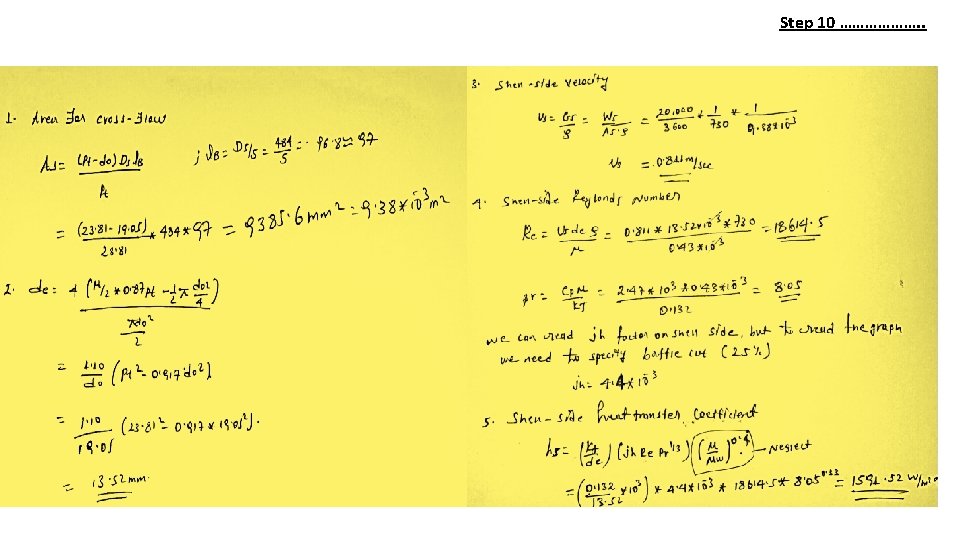 Step 10 ………………..
1. Area for cross-flow
As = (Pt-do) Ds lB / Pt ; lB = Ds/5 = 484/5 = 96.8 ≈ 97
= (23.81-19.05)/23.81 * 484*97 = 9385.6 mm² = 9.38*10⁻³ m²
2. de = 4 (Pt/2 * 0.87Pt - 1/2 π do²/4) / (πdo/2)
= 1.10/do (Pt² - 0.917 do²)
= 1.10/19.05 (23.81² - 0.917 * 19.05²).
= 13.52 mm.
3. Shell-side velocity
us = Gs/ρ = Ws/As.ρ = 20,000/3600 * 1/730 * 1/9.38*10⁻³
us = 0.811 m/sec
4. Shell-side Reylonds Number
Re = us de ρ/μ = 0.811 * 13.52*10⁻³ * 730 / 0.43*10⁻³ = 18614.5
pr = Cp μ/kf = 2.47 * 10³ * 0.43*10⁻³ / 0.132 = 8.05
we can read jh factor on shell side, but to read the graph
we need to specify baffle cut (25%)
jh = 4.4*10⁻³
5. Shell-side heat transfer coefficient
hs = (kf/de) (jh Re Pr^1/3) (μ/μw)^0.14 - Neglect
= (0.132/13.52 *10³) * 4.4*10⁻³ * 18614.5 * 8.05^0.33 = 1591.52 W/m²°